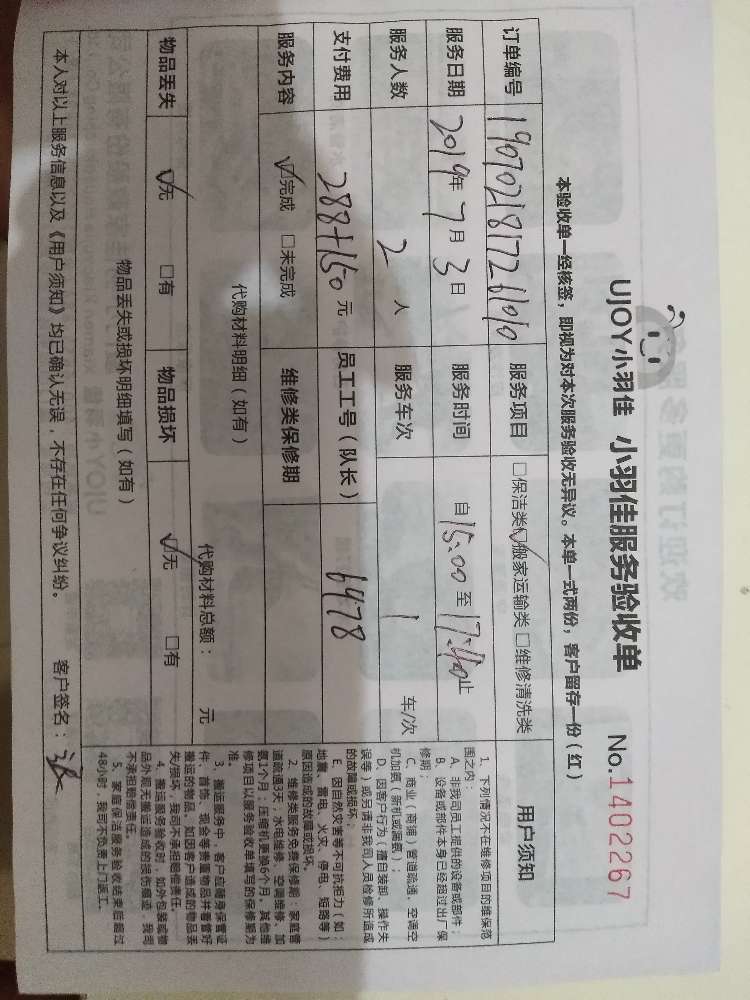 UJOY小羽佳 小羽佳服务验收单 No.1402267
本验收单一经核签，即视为对本次服务验收无异议。本单一式两份，客户留存一份（红）
订单编号 服务项目 □保洁类 ☑搬家运输类 □维修清洗类
服务日期 2019年7月3日 服务时间 自15:00至17:40止
服务人数 2人 服务车次 1 车/次
支付费用 288+150元 员工工号（队长） 6478
服务内容 ☑完成 □未完成 维修类保修期
代购材料明细（如有）
代购材料总额： 元
物品丢失 ☑无 □有 物品损坏 ☑无 □有
物品丢失或损坏明细填写（如有）
本人对以上服务信息以及《用户须知》均已确认无误，不存在任何争议纠纷。 客户签名：
用户须知
1、下列情况不在维修项目的维保范
围之内：
A、非我司员工提供的设备或部件；
B、设备或部件本身已经超过出厂保
修期；
C、商业（商铺）管道疏通、空调空
机加氨（新机或漏氨）；
D、因客户行为（擅自装卸、操作失
误等）或另请非我司人员检修所造成
的故障或损坏；
E、因自然灾害等不可抗拒力（如：
地震、雷电、火灾、停电、短路等）
原因造成的故障或损坏。
2、维修类服务免费保修期：家庭管
道疏通3天；水电维修、空调维修、加
氨1个月；压缩机更换6个月。其他维
修项目以服务验收单填写的保修期为
准。
3、搬运服务中，客户应随身保管证
件、首饰、现金等贵重物品并看管好
搬运的物品。如因客户造成的物品丢
失/损坏，我司不承担赔偿责任。
4、搬运服务验收时，如外包装或物
品外观无搬运造成的损伤痕迹，我司
不承担赔偿责任。
5、家庭保洁服务验收结束后超过
48小时，我司不负责上门返工。